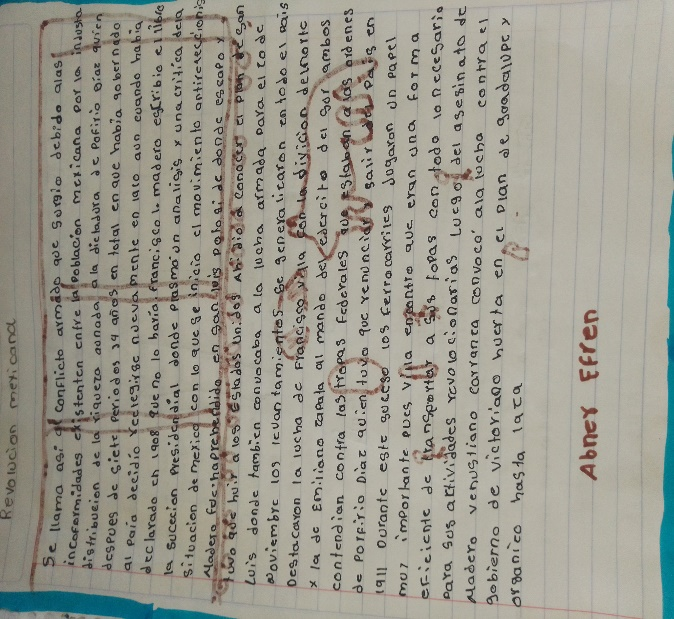 Revolucion mexicana
Se llama asi al conflicto armado que surgio debido alas
incoformidades existenten entre la poblacion mexicana por la injusta
distribucion de la riqueza aonada a la dictadura de Pofirio Diaz quien
despues de siete periodos 34 años en total en que habia gobernado
al paio decidio reelegirse nueva mente en 1910 aun cuando habia
declarado en 1908 que no lo haria, Francisco I. madero escribio el libro
la sucecion Presidendial donde Plasmo un analisis y una critica dela
situacion de mexico con lo que se inicio el movimiento antireeleccionis
Madero fue haprehendido en san luis potosi de donde escapo y
tuvo que huir a los Estados Unidos Ahi dio a conocer el Plan de san
Luis donde tambien convocaba a la lucha armada para el 20 de
Noviembre los levantamientos se generalizaron en todo el pais
Destacaron la lucha de Francisco villa con la division del norte
y la de Emiliano zapata al mando del ejercito del sur ambos
contendian contra las tropas Federales que estaban a las ordenes
de Porfirio Diaz quien tuvo que renunciar y salir del Pais en
1911 Durante este suceso los Ferrocarriles Jugaron un Papel
muy importante pues villa encontro que eran una forma
eficiente de transportar a sus topas con todo lo necesario
para sus actividades revolocionarias Luego del asesinato de
Madero venustiano carranza convocó ala lucha contra el
gobierno de victoriano huerta en el Plan de guadalupe y
organico hasta
Abner Efren